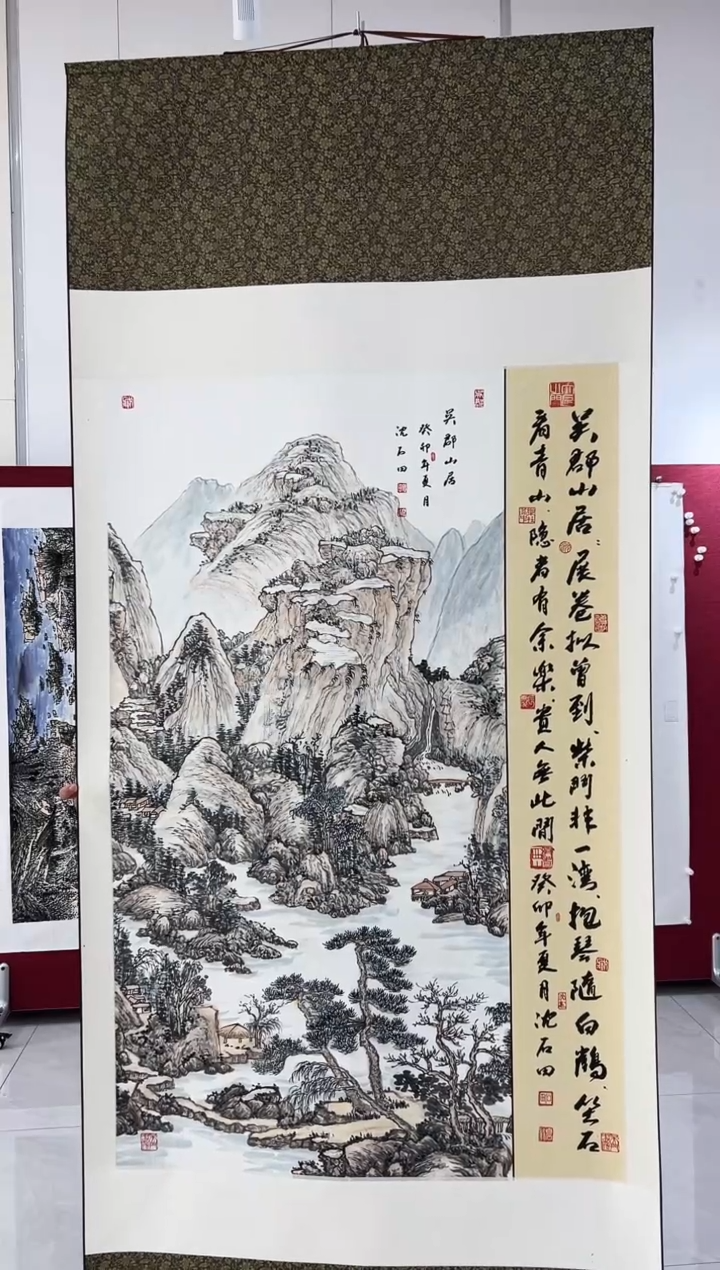 吴郡山居
癸卯年夏月
沈石田
吴郡山居：展卷拟曾到、柴门非一湾、抱琴随白鹤、坐石
看青山、隐者有余乐、贵人无此闲
癸卯年夏月沈石田